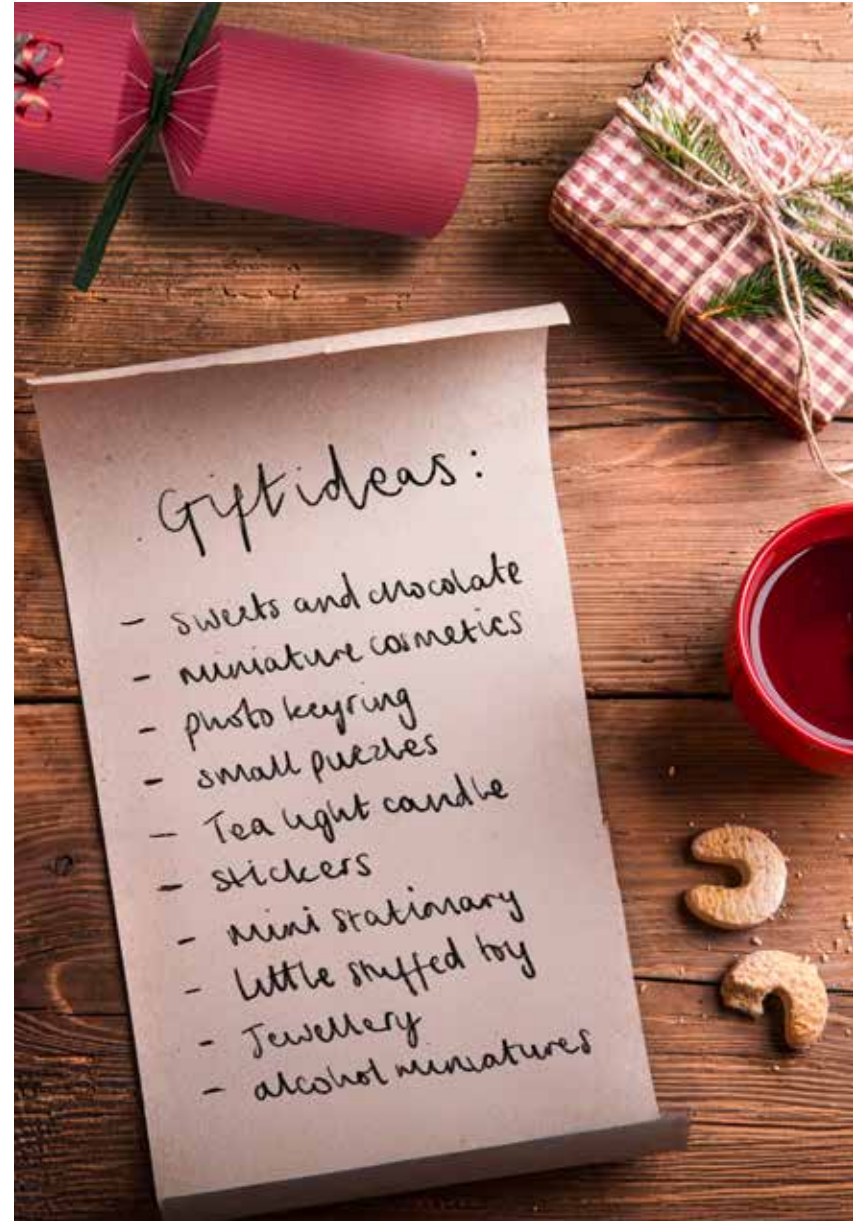 Gift ideas:
- sweets and chocolate
- miniature cosmetics
- photo keyring
- small puzzles
- Tea light candle
- stickers
- mini stationary
- little stuffed toy
- Jewellery
- alcohol miniatures